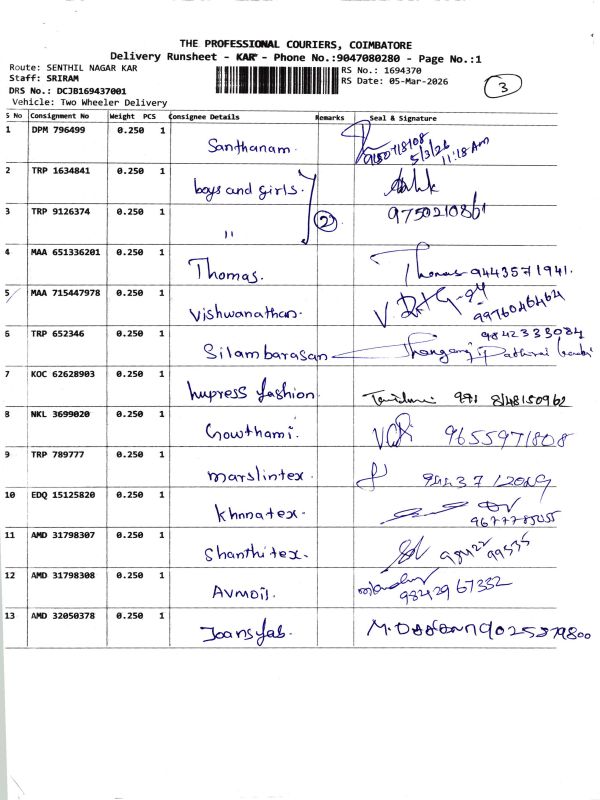 THE PROFESSIONAL COURIERS, COIMBATORE
Delivery Runsheet - KAR - Phone No.:9047080280 - Page No.:1
Route: SENTHIL NAGAR KAR
Staff: SRIRAM
DRS No.: DCJB169437001
Vehicle: Two Wheeler Delivery
RS No.: 1694370
RS Date: 05-Mar-2026
3
S No Consignment No Weight PCS Consignee Details Remarks Seal & Signature
1 DPM 796499 0.250 1 Santhanam. 5/3/26 11:18 Am
2 TRP 1634841 0.250 1 boys and girls.
3 TRP 9126374 0.250 1 " 2 9750210861
4 MAA 651336201 0.250 1 Thomas. Thomas 9443571941.
5 MAA 715447978 0.250 1 Vishwanathan. 9976046464
6 TRP 652346 0.250 1 Silambarasan 9842333084
7 KOC 62628903 0.250 1 fashion
8 NKL 3699020 0.250 1 Gowthami. 9655971808
9 TRP 789777 0.250 1 marslintex.
10 EDQ 15125820 0.250 1 Khnnatex.
11 AMD 31798307 0.250 1 Shanthitex. 98422 99535
12 AMD 31798308 0.250 1 Avmoil. 98429 67332
13 AMD 32050378 0.250 1 9025379800